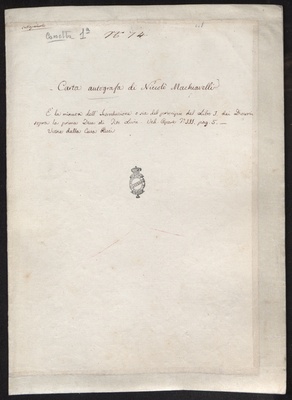 Cassetta 1ª
Nº 74
Carta autografa di Nicolò Machiavelli
È la minuta dell' Introduzione o sia del principio del Libro I. dei Discorsi
sopra la prima Deca di Tito Livio
pag. 5.
Viene dalla Casa Ricci